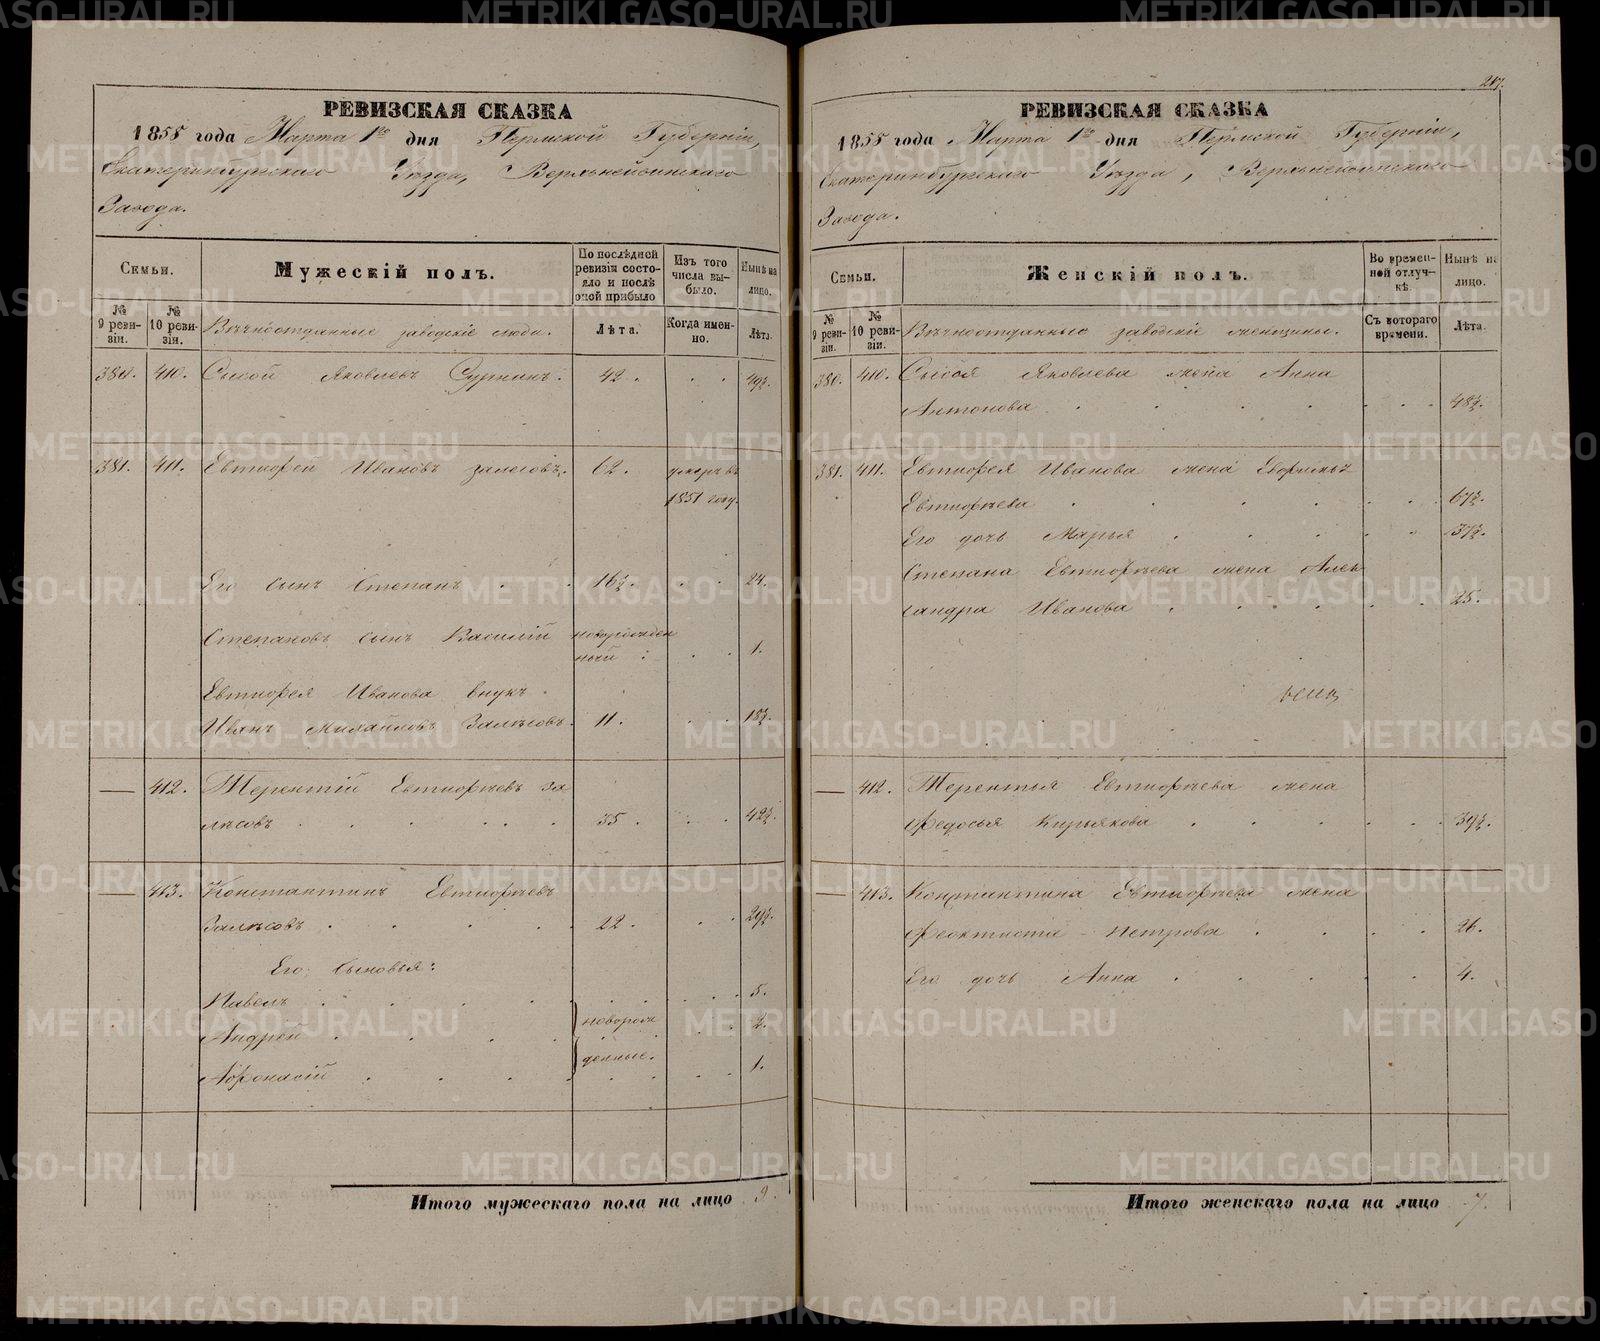 РЕВИЗСКАЯ СКАЗКА
1858 года Марта 1го дня Пермской Губерніи,
Екатеринбургскаго Уѣзда, Верхъ-нейвинскаго
Завода.
Семьи.
Мужескій полъ.
По послѣдней ревизіи состояло и послѣ оной прибыло
Изъ того числа выбыло.
Нынѣ на лицо.
№ 9 ревизіи.
№ 10 ревизіи.
Вѣчноотданные заводскіе люди.
Лѣта.
Когда именно.
Лѣта.
380. 410. Сысой Яковлевъ 42. 49½.
381. 411. Евтифей Ивановъ Залесовъ. 62. умеръ въ
1851 году.
Его сынъ Степанъ 16½. 24.
Степановъ сынъ Василій новорожден
ный 1.
Евтифея Иванова внукъ
Иванъ Михайловъ Залѣсовъ. 11. 18½.
— 412. Терентій Евтифѣевъ За
лѣсовъ 35. 42½.
— 413. Константинъ Евтифѣевъ
Залѣсовъ 22. 29½.
Его сыновья:
Павелъ 5.
Андрей 2.
новорож
денные.
Афонасій 1.
Итого мужескаго пола на лицо 9.
217.
РЕВИЗСКАЯ СКАЗКА
1858 года Марта 1го дня Пермской Губерніи,
Екатеринбургскаго Уѣзда, Верхъ-нейвинскаго
Завода.
Семьи.
Женскій полъ.
Во временной отлучкѣ.
Нынѣ на лицо.
№ 9 ревизіи.
№ 10 ревизіи.
Вѣчноотданные заводскіе женщины.
Съ котораго времени.
Лѣта.
380. 410. Сысоя Яковлева жена Анна
Антонова 48½.
381. 411. Евтифея Иванова жена
Евтифѣева 67½.
Его дочь Марья 37½.
Степана Евтифѣева жена Алек
сандра Иванова 25.
— 412. Терентья Евтифѣева жена
Федосья Кирьякова 39½.
— 413. Константина Евтифѣева жена
Феоктиста Петрова 26.
Его дочь Анна 4.
Итого женскаго пола на лицо 7.
METRIKI.GASO-URAL.RU